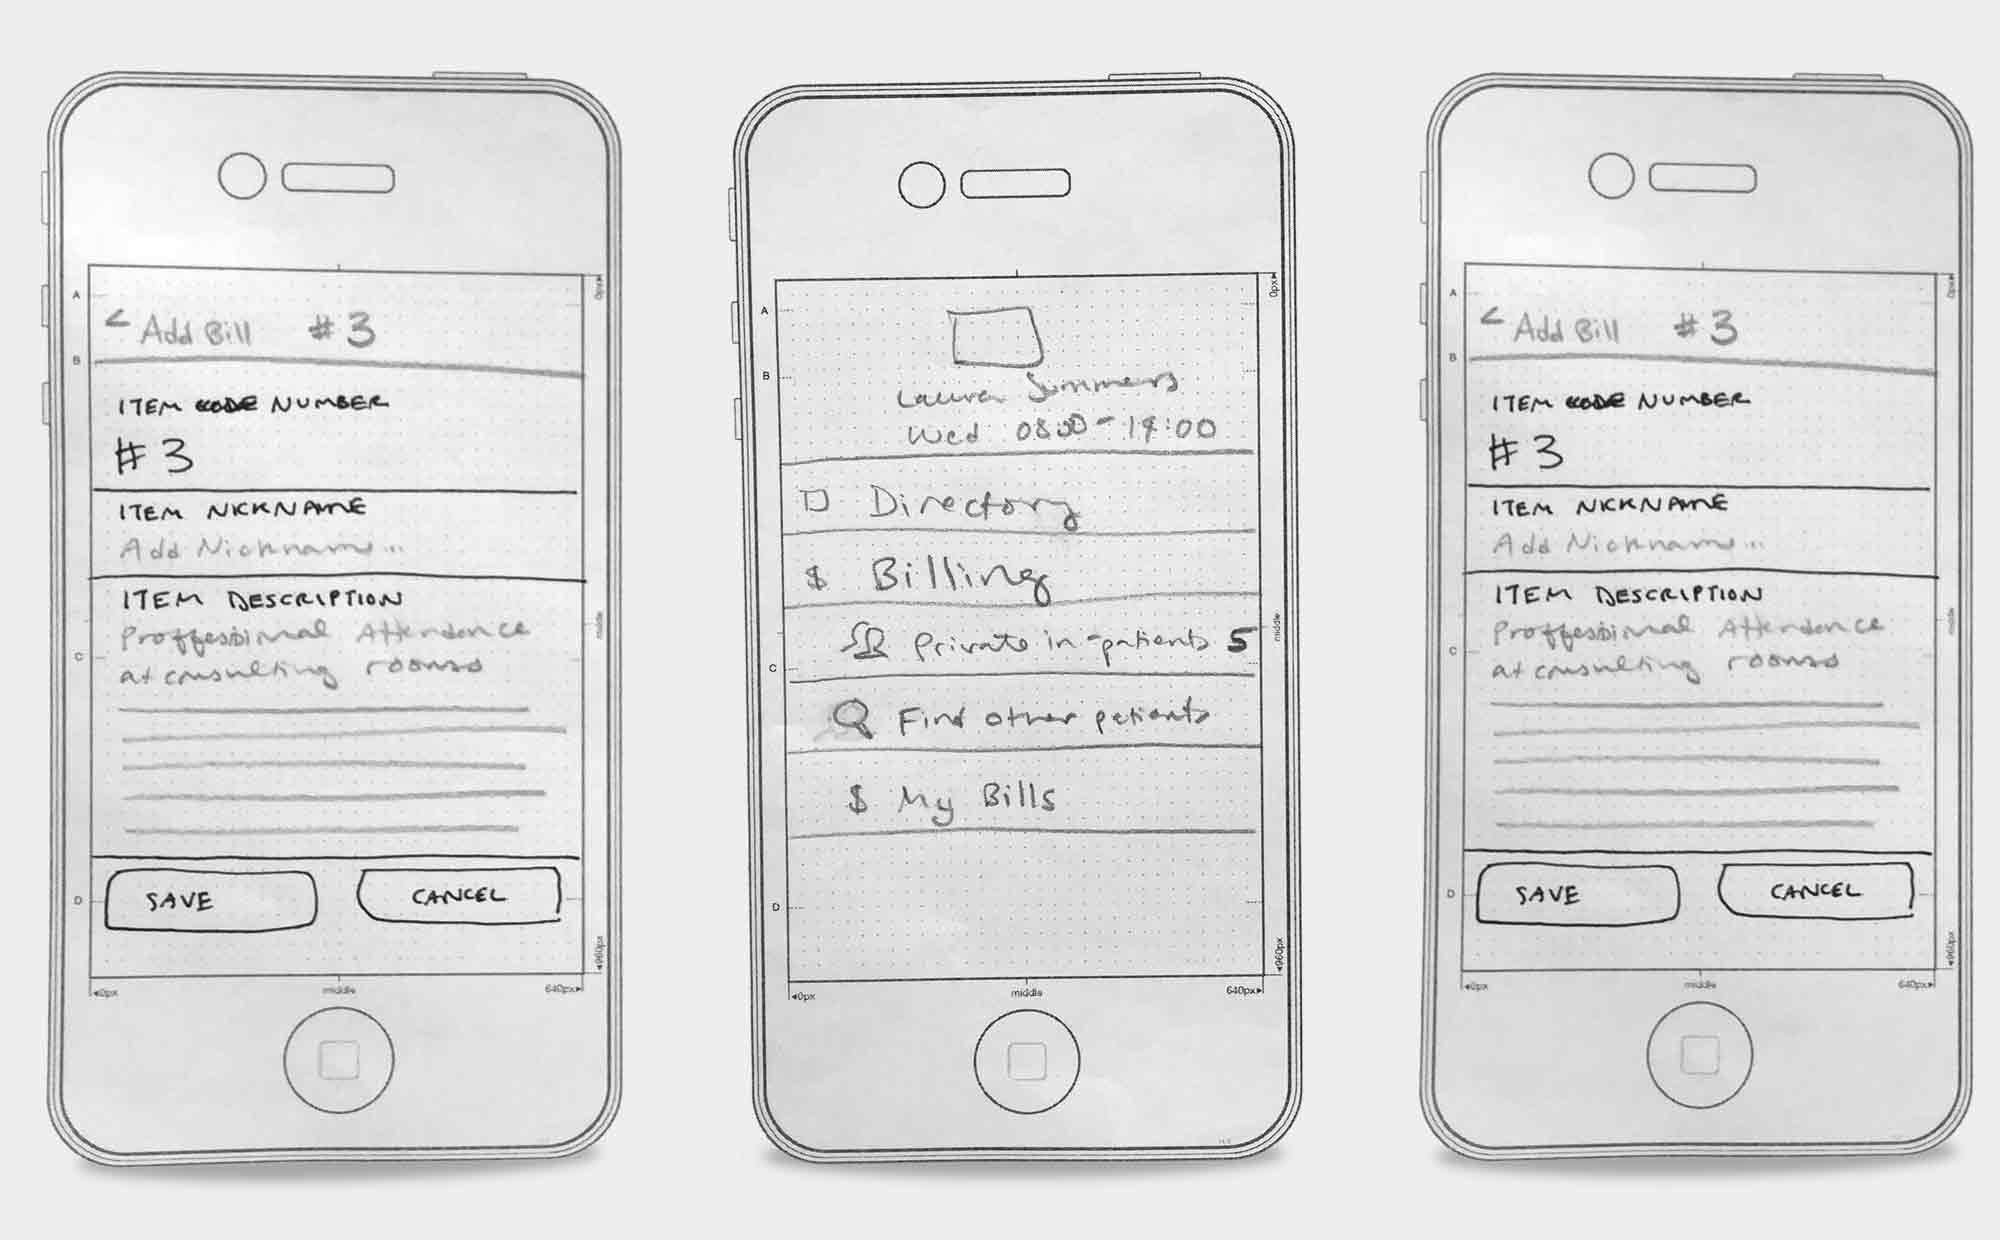 < Add Bill #3
ITEM CODE NUMBER
#3
ITEM NICKNAME
Add Nickname...
ITEM DESCRIPTION
Proffessional Attendance
at consulting rooms
SAVE CANCEL
A
B
C
D
0px
middle
960px
0px middle 640px
Laura Summers
Wed 08:00 - 19:00
Directory
$ Billing
Private in-patients 5
Find other patients
$ My Bills
A
B
C
D
0px
middle
960px
0px middle 640px
< Add Bill #3
ITEM CODE NUMBER
#3
ITEM NICKNAME
Add Nickname...
ITEM DESCRIPTION
Proffessional Attendance
at consulting rooms
SAVE CANCEL
A
B
C
D
0px
middle
960px
0px middle 640px